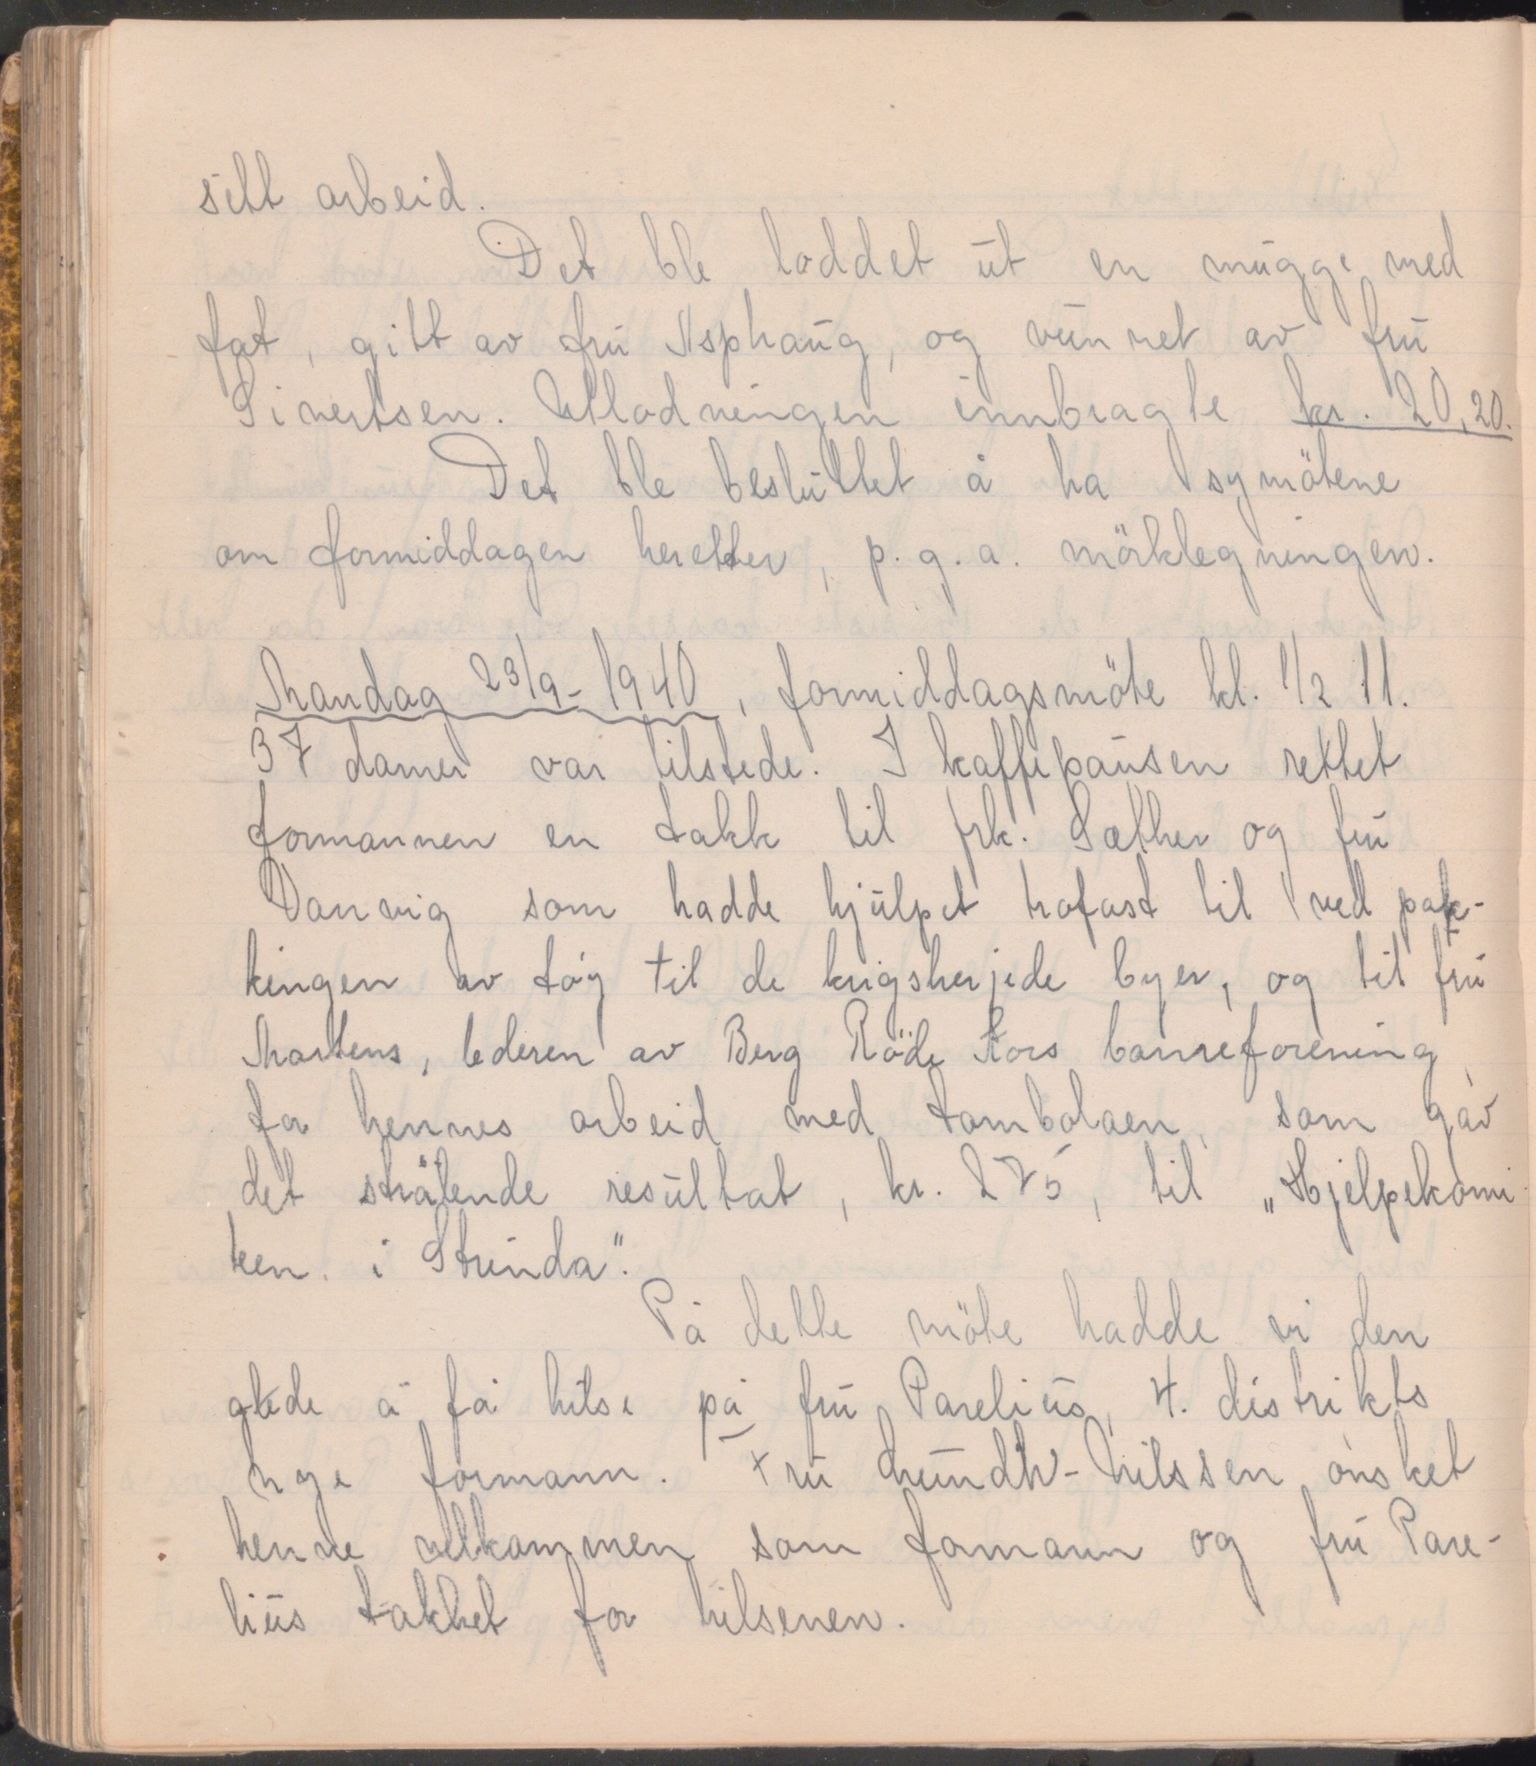 sitt arbeid.
Det ble loddet ut en mugge med
fat, gitt av fru Asphaug, og vunnet av fru
Sivertsen. Utlodningen innbragte kr. 20,20.
Det ble besluttet å ha symötene
om formiddagen heretter, p.g.a. mörklegningen.
Mandag 23/9- 1940, formiddagsmöte kl. 1/2 11.
37 damer var tilstede. I kaffepausen rettet
formannen en takk til frk. Sæther og fru
Danvig som hadde hjulpet trofast til ved pak-
kingen av töy til de krigsherjede byer, og til fru
Martens, lederen av Berg Röde Kors barneforening
for hennes arbeid med tombolaen, som gav
det strålende resultat, kr. 275, til „Hjelpekomi-
teen i Strinda".
På dette möte hadde vi den
glede å få hilse på fru Parelius, 4. distrikts
nye formann. Fru Lundh-Nilssen önsket
henne velkommen som formann og fru Pare-
lius takket for hilsenen.